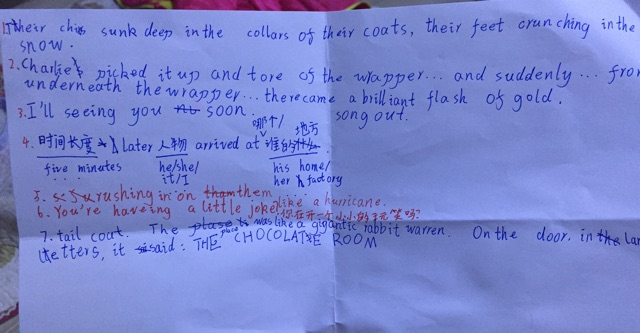 1.Their chins sunk deep in the collars of their coats, their feet crunching in the
snow.
2.Charlie picked it up and tore of the wrapper... and suddenly... from
underneath the wrapper... there came a brilliant flash of gold.
3.I'll seeing you soon. song out.
哪个/ 地方
4.时间长度 later 人物 arrived at 谁的什么
five minutes he/she/ his home/
it/I her factory
5. rushing in on them like a hurricane.
6.You're haveing a little joke! 你在开一个小小的玩笑吗?
7.tail coat. The place was like a gigantic rabbit warren. On the door, in the
letters, it said: THE CHOCOLATE ROOM